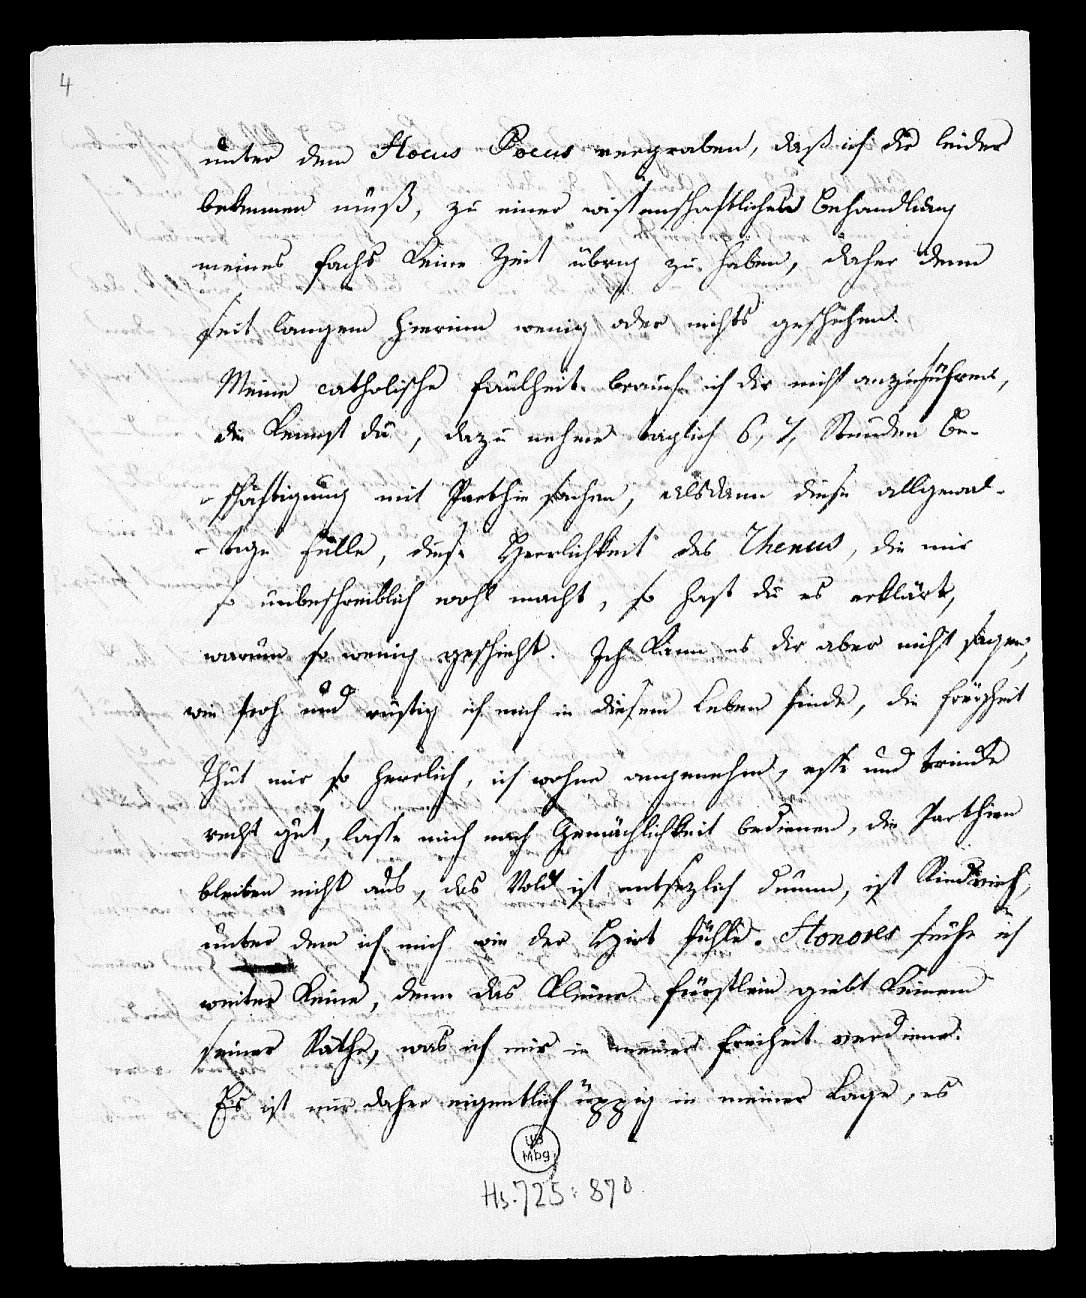 4
unter dem Hocus Pocus vergraben, daß ich dir leider
bekennen muß, zu einer wissenschaftlichen Behandlung
meines Fachs keine Zeit übrig zu haben, daher denn
seit langem hierinn wenig oder nichts geschehen.
Meine catholische Faulheit brauch ich dir nicht anzuführen,
die kennst du, dazu nehme täglich 6, 7, Stunden Be-
schäftigung mit Parthie sachen, alsdann diese allgewal-
-tige Fülle, diese Herrlichkeit des, die mir
so unbeschreiblich wohl macht, so hast du es erklärt,
warum so wenig geschieht. Ich kann es dir aber nicht sagen,
wie froh und rüstig ich mich in diesem Leben finde, die Freiheit
thut mir so herrlich, ich wohne angenehm, esse und trinke
recht gut, lasse mich nach Gemächlichkeit bedienen, die Parthien
bleiben nicht aus, das Volk ist entsezlich dumm, ist Rindvieh,
unter dem ich mich wie der Hirt fühle. Honores suche ich
weiter keine, denn das kleine Fürstlein giebt keinem
seiner Räthe, was ich mir in meiner Freiheit verdiene.
Es ist mir daher eigentlich üppig in meiner Lage, es
UB
Mbg
Hs. 725: 870